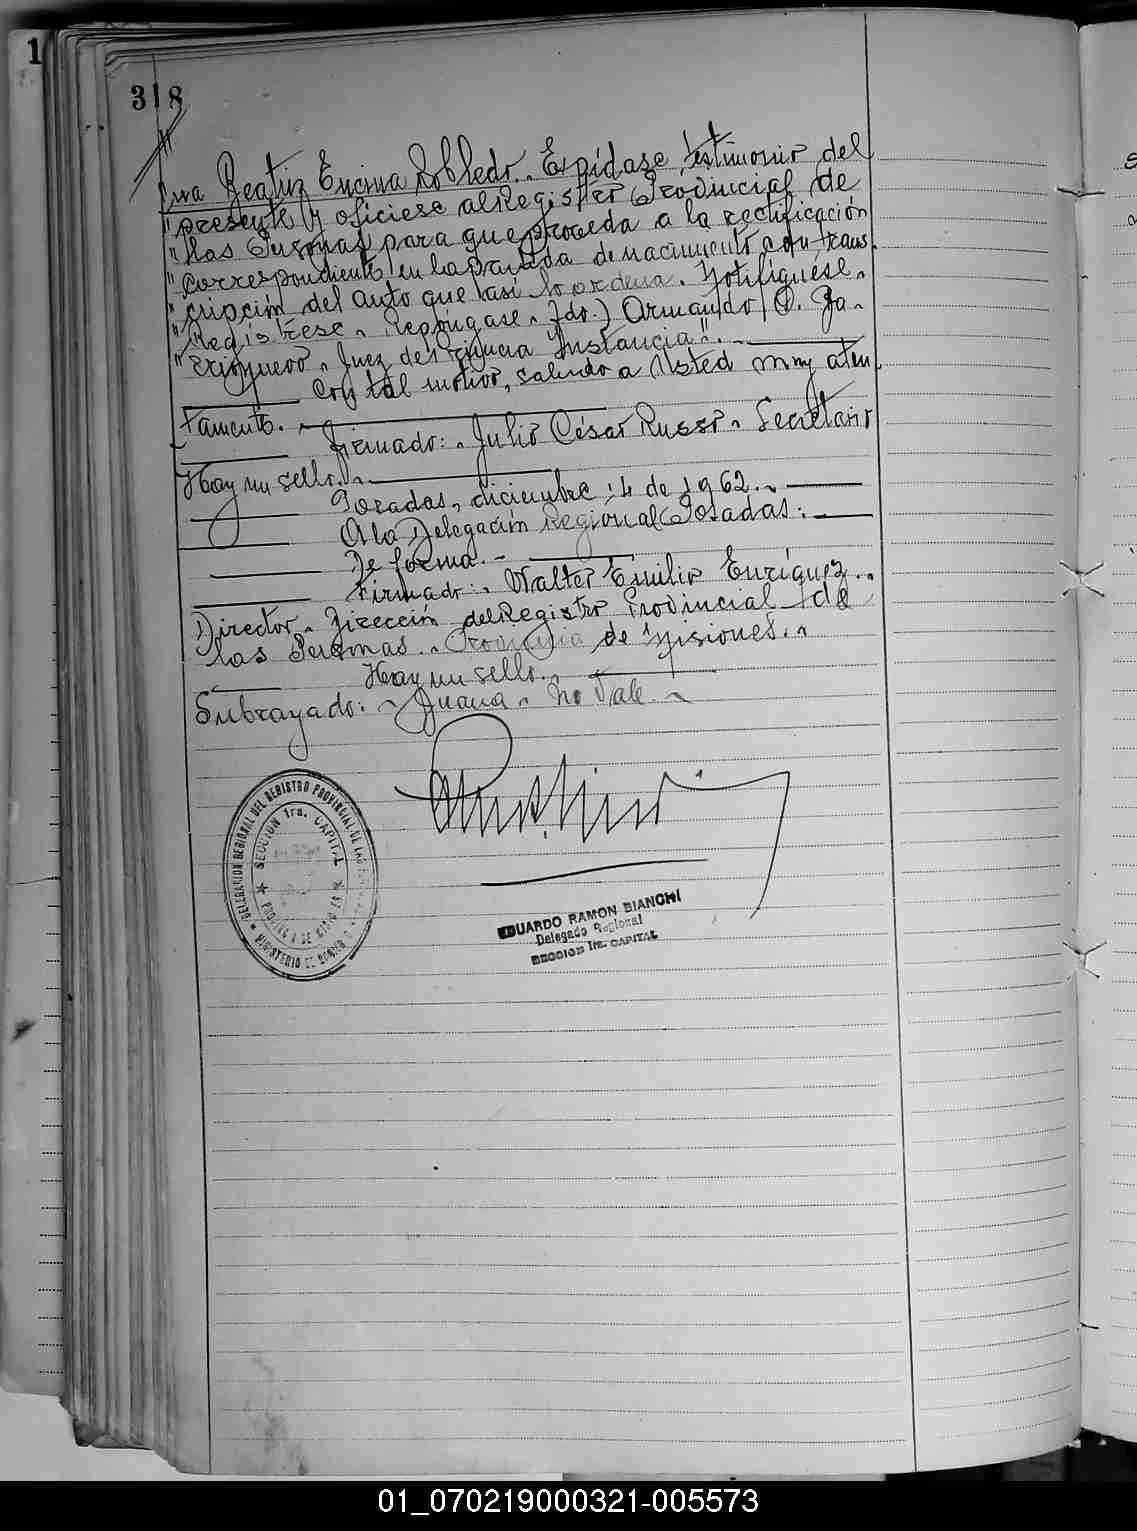 1
318
Beatriz Encina Robledo. Expídase testimonio del
"presente y ofíciese al Registro Provincial de
"las Personas para que proceda a la rectificación
"correspondiente en la partida de nacimiento con trans
"cripción del auto que así lo ordena. Notifíquese.
"Regístrese. Repóngase. Fdo.) Armando
" Juez de Primera Instancia".
Con tal motivo, saludo a Usted muy aten
tamente.
Firmado:. Julio César Russo. Secretario
Hay un sello.
Posadas, diciembre 14 de 1962.
A la Delegación Regional Posadas:
De forma.-
Firmado:. Walter Emilio Enríquez..
Director. Dirección del Registro Provincial de
las Personas. Provincia de Misiones.
Hay un sello.
Subrayado: Juana. No Vale.
DELEGACION REGIONAL DEL REGISTRO PROVINCIAL DE LAS
SECCION 1ra. CAPITAL
EDUARDO RAMON BIANCHI
Delegado Regional
SECCION 1ra. CAPITAL
01_070219000321-005573